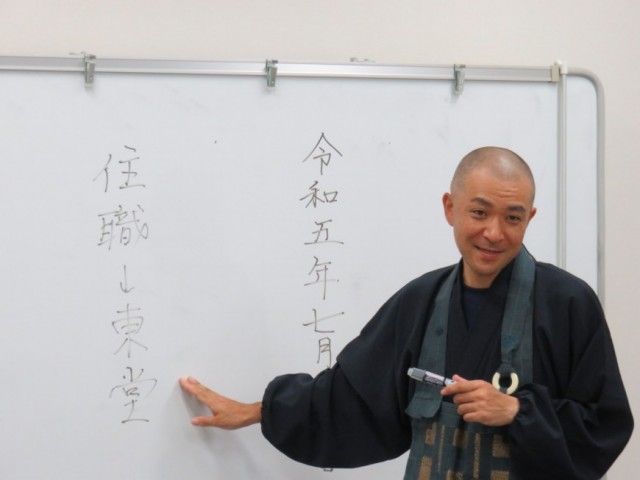 令和五年七月
住職→東堂